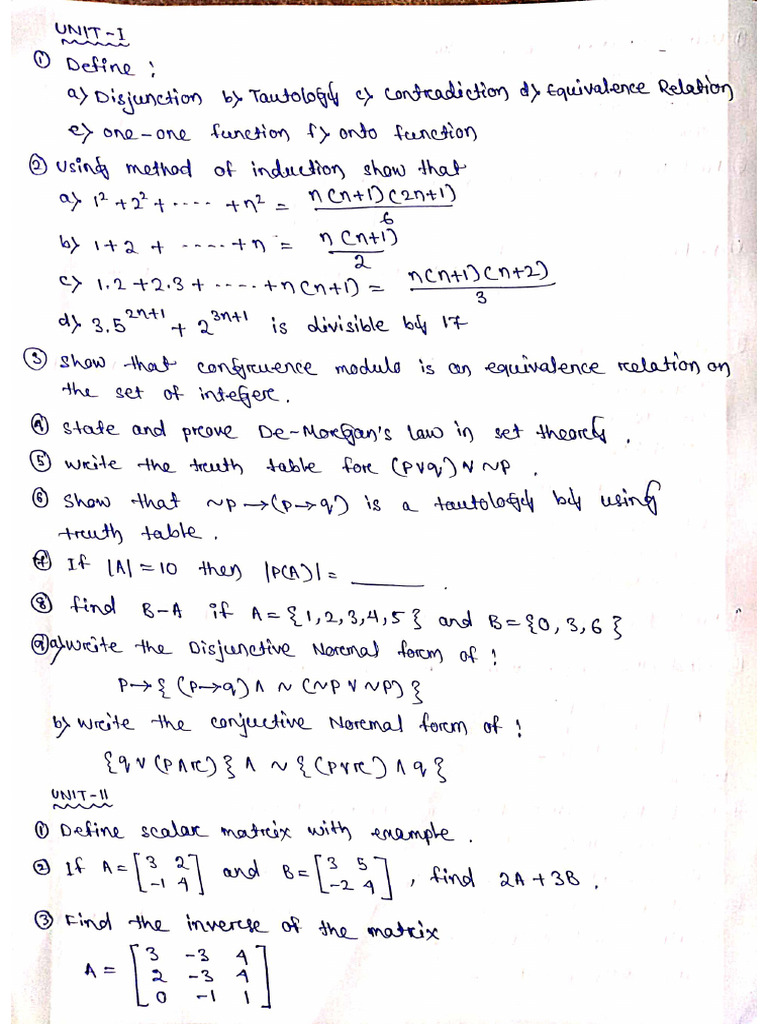 UNIT-I
① Define :
a) Disjunction b) Tautology c) Contradiction d) Equivalence Relation
e) one-one function f) onto function
② Using method of induction show that
a) 1² + 2² + ····· + n² = n(n+1)(2n+1) / 6
b) 1+2 + ····· + n = n(n+1) / 2
c) 1.2 + 2.3 + ····· + n(n+1) = n(n+1)(n+2) / 3
d) 3.5^(2n+1) + 2^(3n+1) is divisible by 17
③ Show that congruence modulo is an equivalence relation on
the set of integer.
④ State and prove De-Morgan's law in set theory.
⑤ write the truth table for (p∨q) ∨ ~p .
⑥ Show that ~p → (p→q) is a tautology by using
truth table.
⑦ If |A| = 10 then |P(A)| = ______ .
⑧ find B-A if A = {1,2,3,4,5} and B = {0,3,6}
⑨ a) write the Disjunctive Normal form of :
p → {(p→q) ∧ ~(~p ∨ ~p)}
b) write the conjuctive Normal form of :
{q ∨ (p∧r)} ∧ ~{(p∨r) ∧ q}
UNIT-II
① Define scalar matrix with example .
② If A = [3 2; -1 4] and B = [3 5; -2 4] , find 2A + 3B .
③ Find the inverse of the matrix
A = [3 -3 4; 2 -3 4; 0 -1 1]